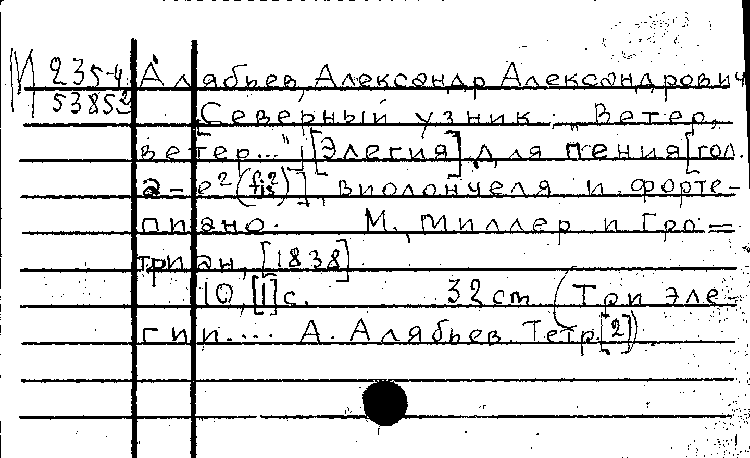 М 235-4 Алябьев, Александр Александрович
53852 Северный узник: "Ветер,
ветер..." [Элегия] для пения [гол.
a - e² (fis²)], виолончеля и форте-
пиано. М., Миллер и Гро-
триан, [1838]
10, [1] с. 32 cm (Три эле-
гии.... А. Алябьев. Тетр. [2])